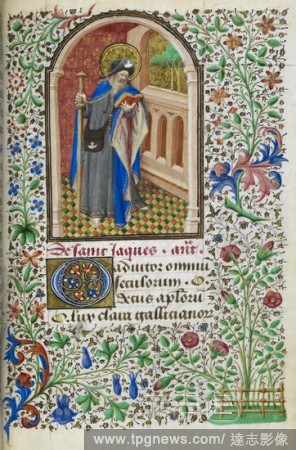 De saint Jaques. ant.
O adiutor omniu
seculorum. O
decus apostoloru
lux clara gallicianor
www.tpgnews.com/ 達志影像